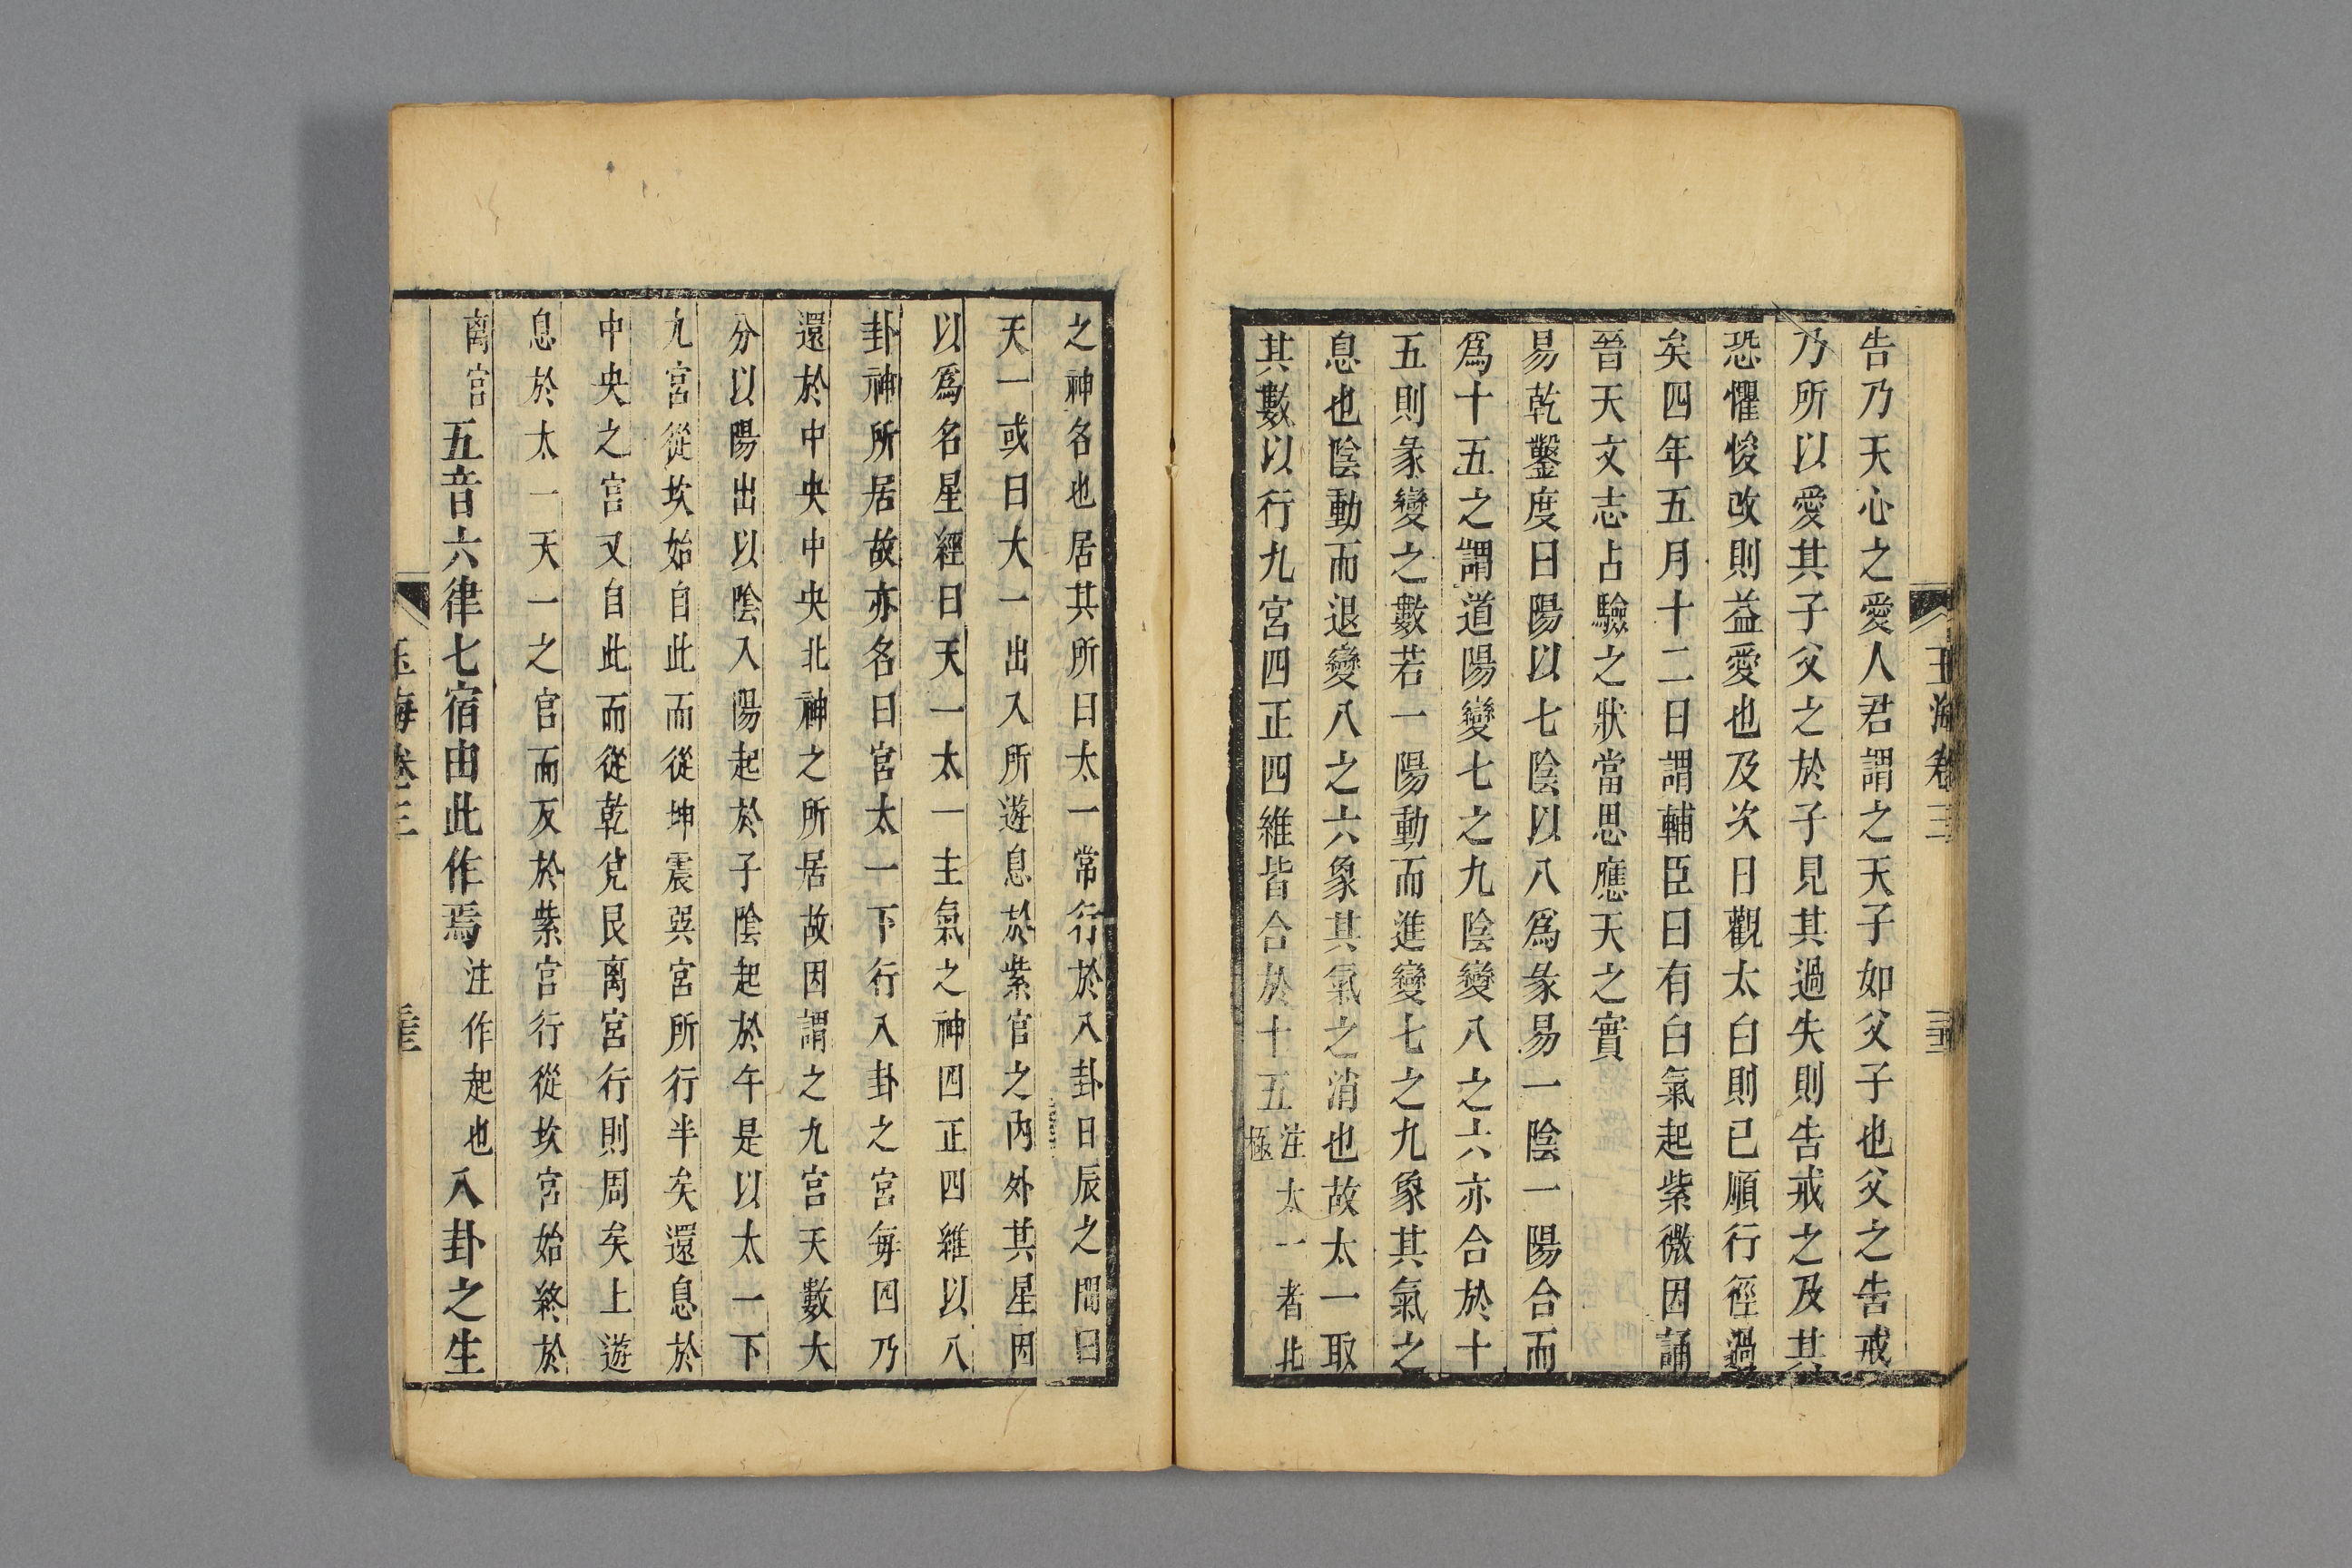 玉海卷三
告乃天心之愛人君謂之天子如父子也父之告戒
乃所以愛其子父之於子見其過失則告戒之及其
恐懼悛改則益愛也及次日觀太白則已順行徑過
矣四年五月十二日謂輔臣曰有白氣起紫微因誦
晉天文志占驗之狀當思應天之實
易乾鑿度曰陽以七陰以八爲彖易一陰一陽合而
爲十五之謂道陽變七之九陰變八之六亦合於十
五則彖變之數若一陽動而進變七之九象其氣之
息也陰動而退變八之六象其氣之消也故太一取
其數以行九宮四正四維皆合於十五注太一者北極
之神名也居其所曰太一常行於八卦日辰之間曰
天一或曰大一出入所遊息於紫宫之內外其星因
以爲名星經曰天一太一主氣之神四正四維以八
卦神所居故亦名曰宮太一下行八卦之宮每四乃
還於中央中央北神之所居故因謂之九宮天數大
分以陽出以陰入陽起於子陰起於午是以太一下
九宮從坎始自此而從坤震巽宮所行半矣還息於
中央之宮又自此而從乾兌艮离宮行則周矣上遊
息於太一天一之宮而反於紫宮行從坎宮始終於
离宮五音六律七宿由此作焉注作起也八卦之生
玉海卷三